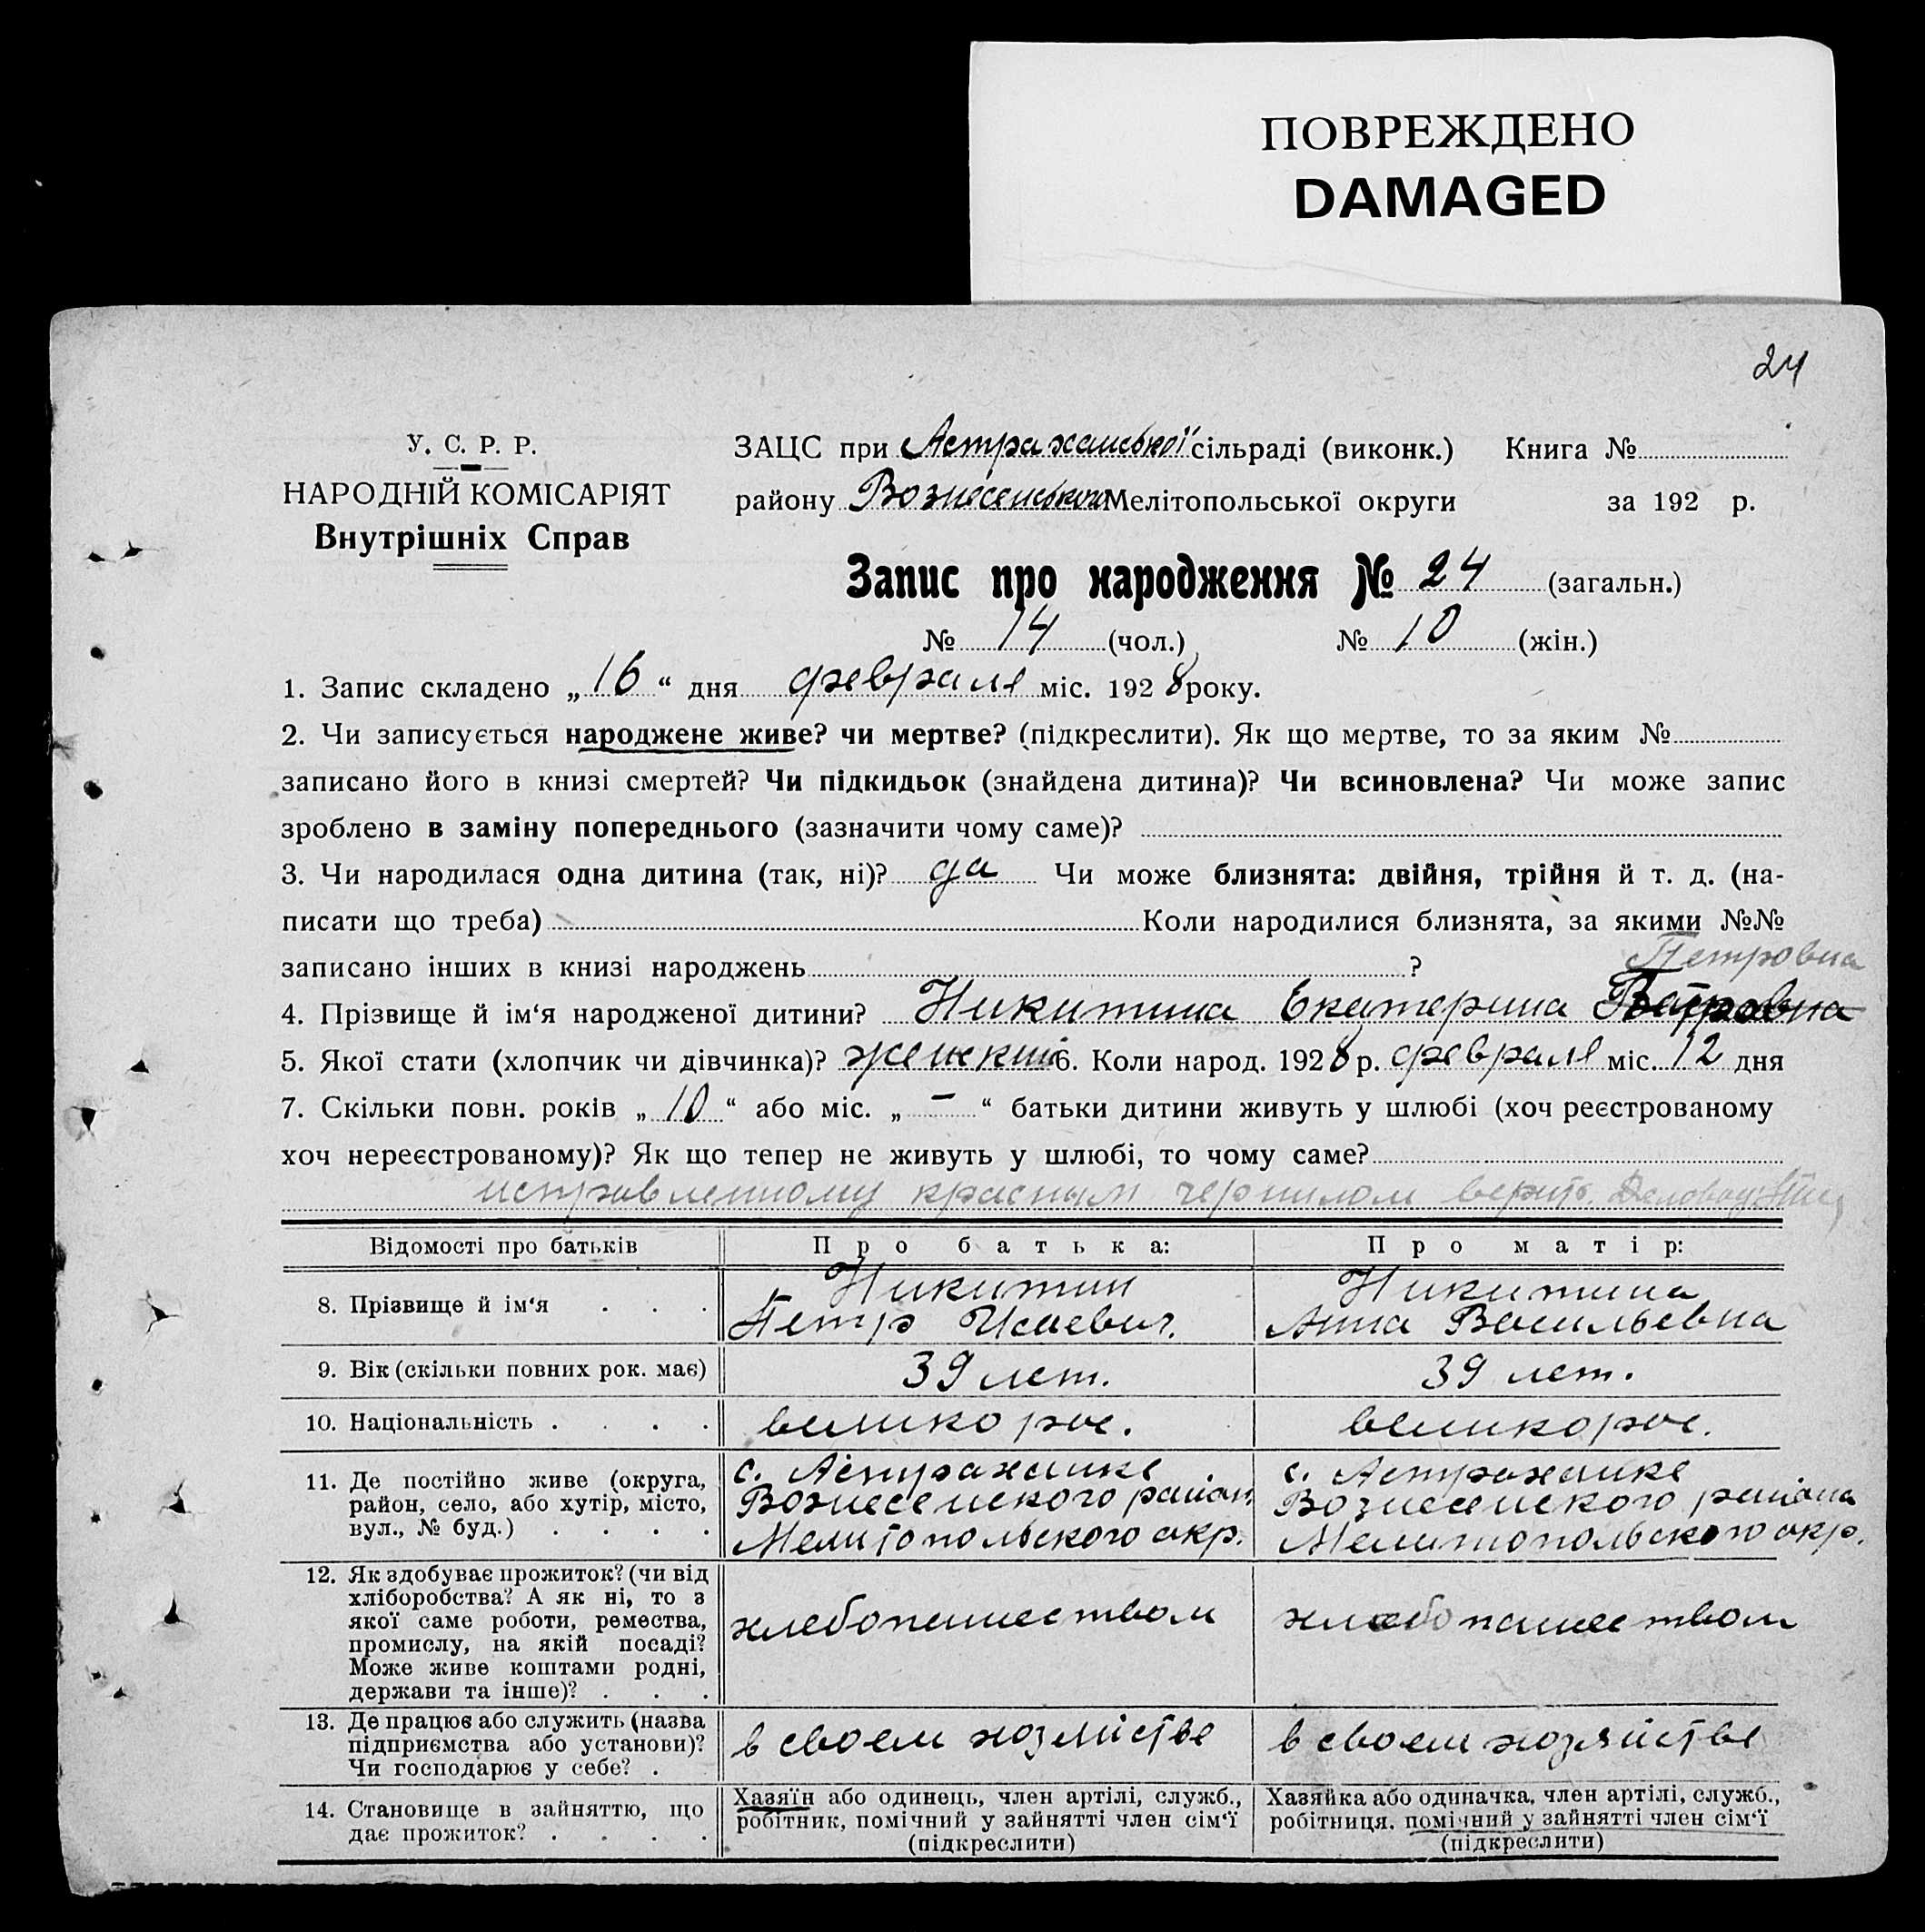 ПОВРЕЖДЕНО
DAMAGED
24
У. С. Р. Р.
НАРОДНІЙ КОМІСАРІЯТ
Внутрішніх Справ
ЗАЦС при Астраханської сільраді (виконк.) Книга №
району Вознесенського Мелітопольської округи за 192 р.
Запис про народження № 24 (загальн.)
№ 14 (чол.) № 10 (жін.)
1. Запис складено „16“ дня февраля міс. 1928 року.
2. Чи записується народжене живе? чи мертве? (підкреслити). Як що мертве, то за яким №
записано його в книзі смертей? Чи підкидьок (знайдена дитина)? Чи всиновлена? Чи може запис
зроблено в заміну попереднього (зазначити чому саме)?
3. Чи народилася одна дитина (так, ні)? да Чи може близнята: двійня, трійня й т. д. (на-
писати що треба) Коли народилися близнята, за якими №№
записано інших в книзі народжень ?
Петровна
4. Прізвище й ім‘я народженої дитини? Никитина Екатерина
5. Якої стати (хлопчик чи дівчинка)? женский 6. Коли народ. 1928 р. февраля міс. 12 дня
7. Скільки повн. років „10“ або міс. „–“ батьки дитини живуть у шлюбі (хоч реєстрованому
хоч нереєстрованому)? Як що тепер не живуть у шлюбі, то чому саме?
исправленному красным чернилом верить.
Відомості про батьків
Про батька:
Про матір:
8. Прізвище й ім‘я . . .
Никитин
Петр Исаевич.
Никитина
Анна Васильевна
9. Вік (скільки повних рок. має)
39 лет.
39 лет.
10. Національність . . . .
великорос.
великорос.
11. Де постійно живе (округа,
район, село, або хутір, місто,
вул., № буд.) . . . .
с. Астраханке
Вознесенского район.
Мелитопольского окр.
с. Астраханке
Вознесенского района
Мелитопольского окр.
12. Як здобуває прожиток? (чи від
хліборобства? А як ні, то з
якої саме роботи, ремества,
промислу, на якій посаді?
Може живе коштами родні,
держави та інше)? . . .
хлебопашеством
хлебопашеством
13. Де працює або служить (назва
підприємства або установи)?
Чи господарює у себе? .
в своем хозяйстве
в своем хозяйстве
14. Становище в зайняттю, що
дає прожиток? . . . .
Хазяїн або одинець, член артілі, служб.,
робітник, помічний у зайнятті член сім‘ї
(підкреслити)
Хазяйка або одиначка, член артілі, служб.,
робітниця, помічний у зайнятті член сім‘ї
(підкреслити)